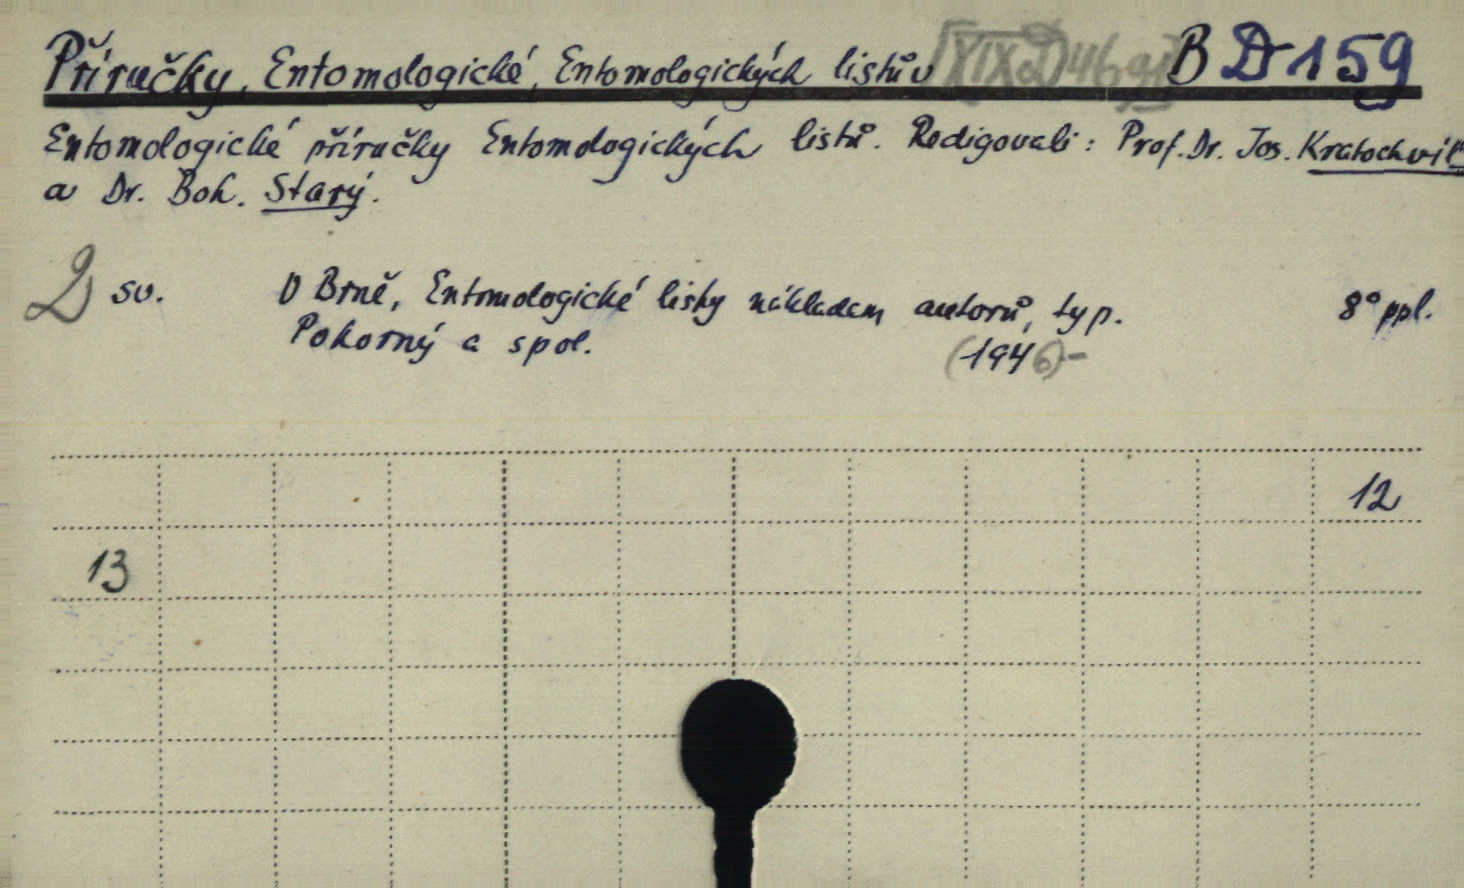 Příručky, Entomologické, Entomologických listův B D 159
Entomologické příručky Entomologických listů. Redigovali: Prof. Dr. Jos. Kratochvíl
a Dr. Boh. Starý.
2 sv. V Brně, Entomologické listy nákladem autorů, typ. 8° ppl.
Pokorný a spol. (1946)-
12
13